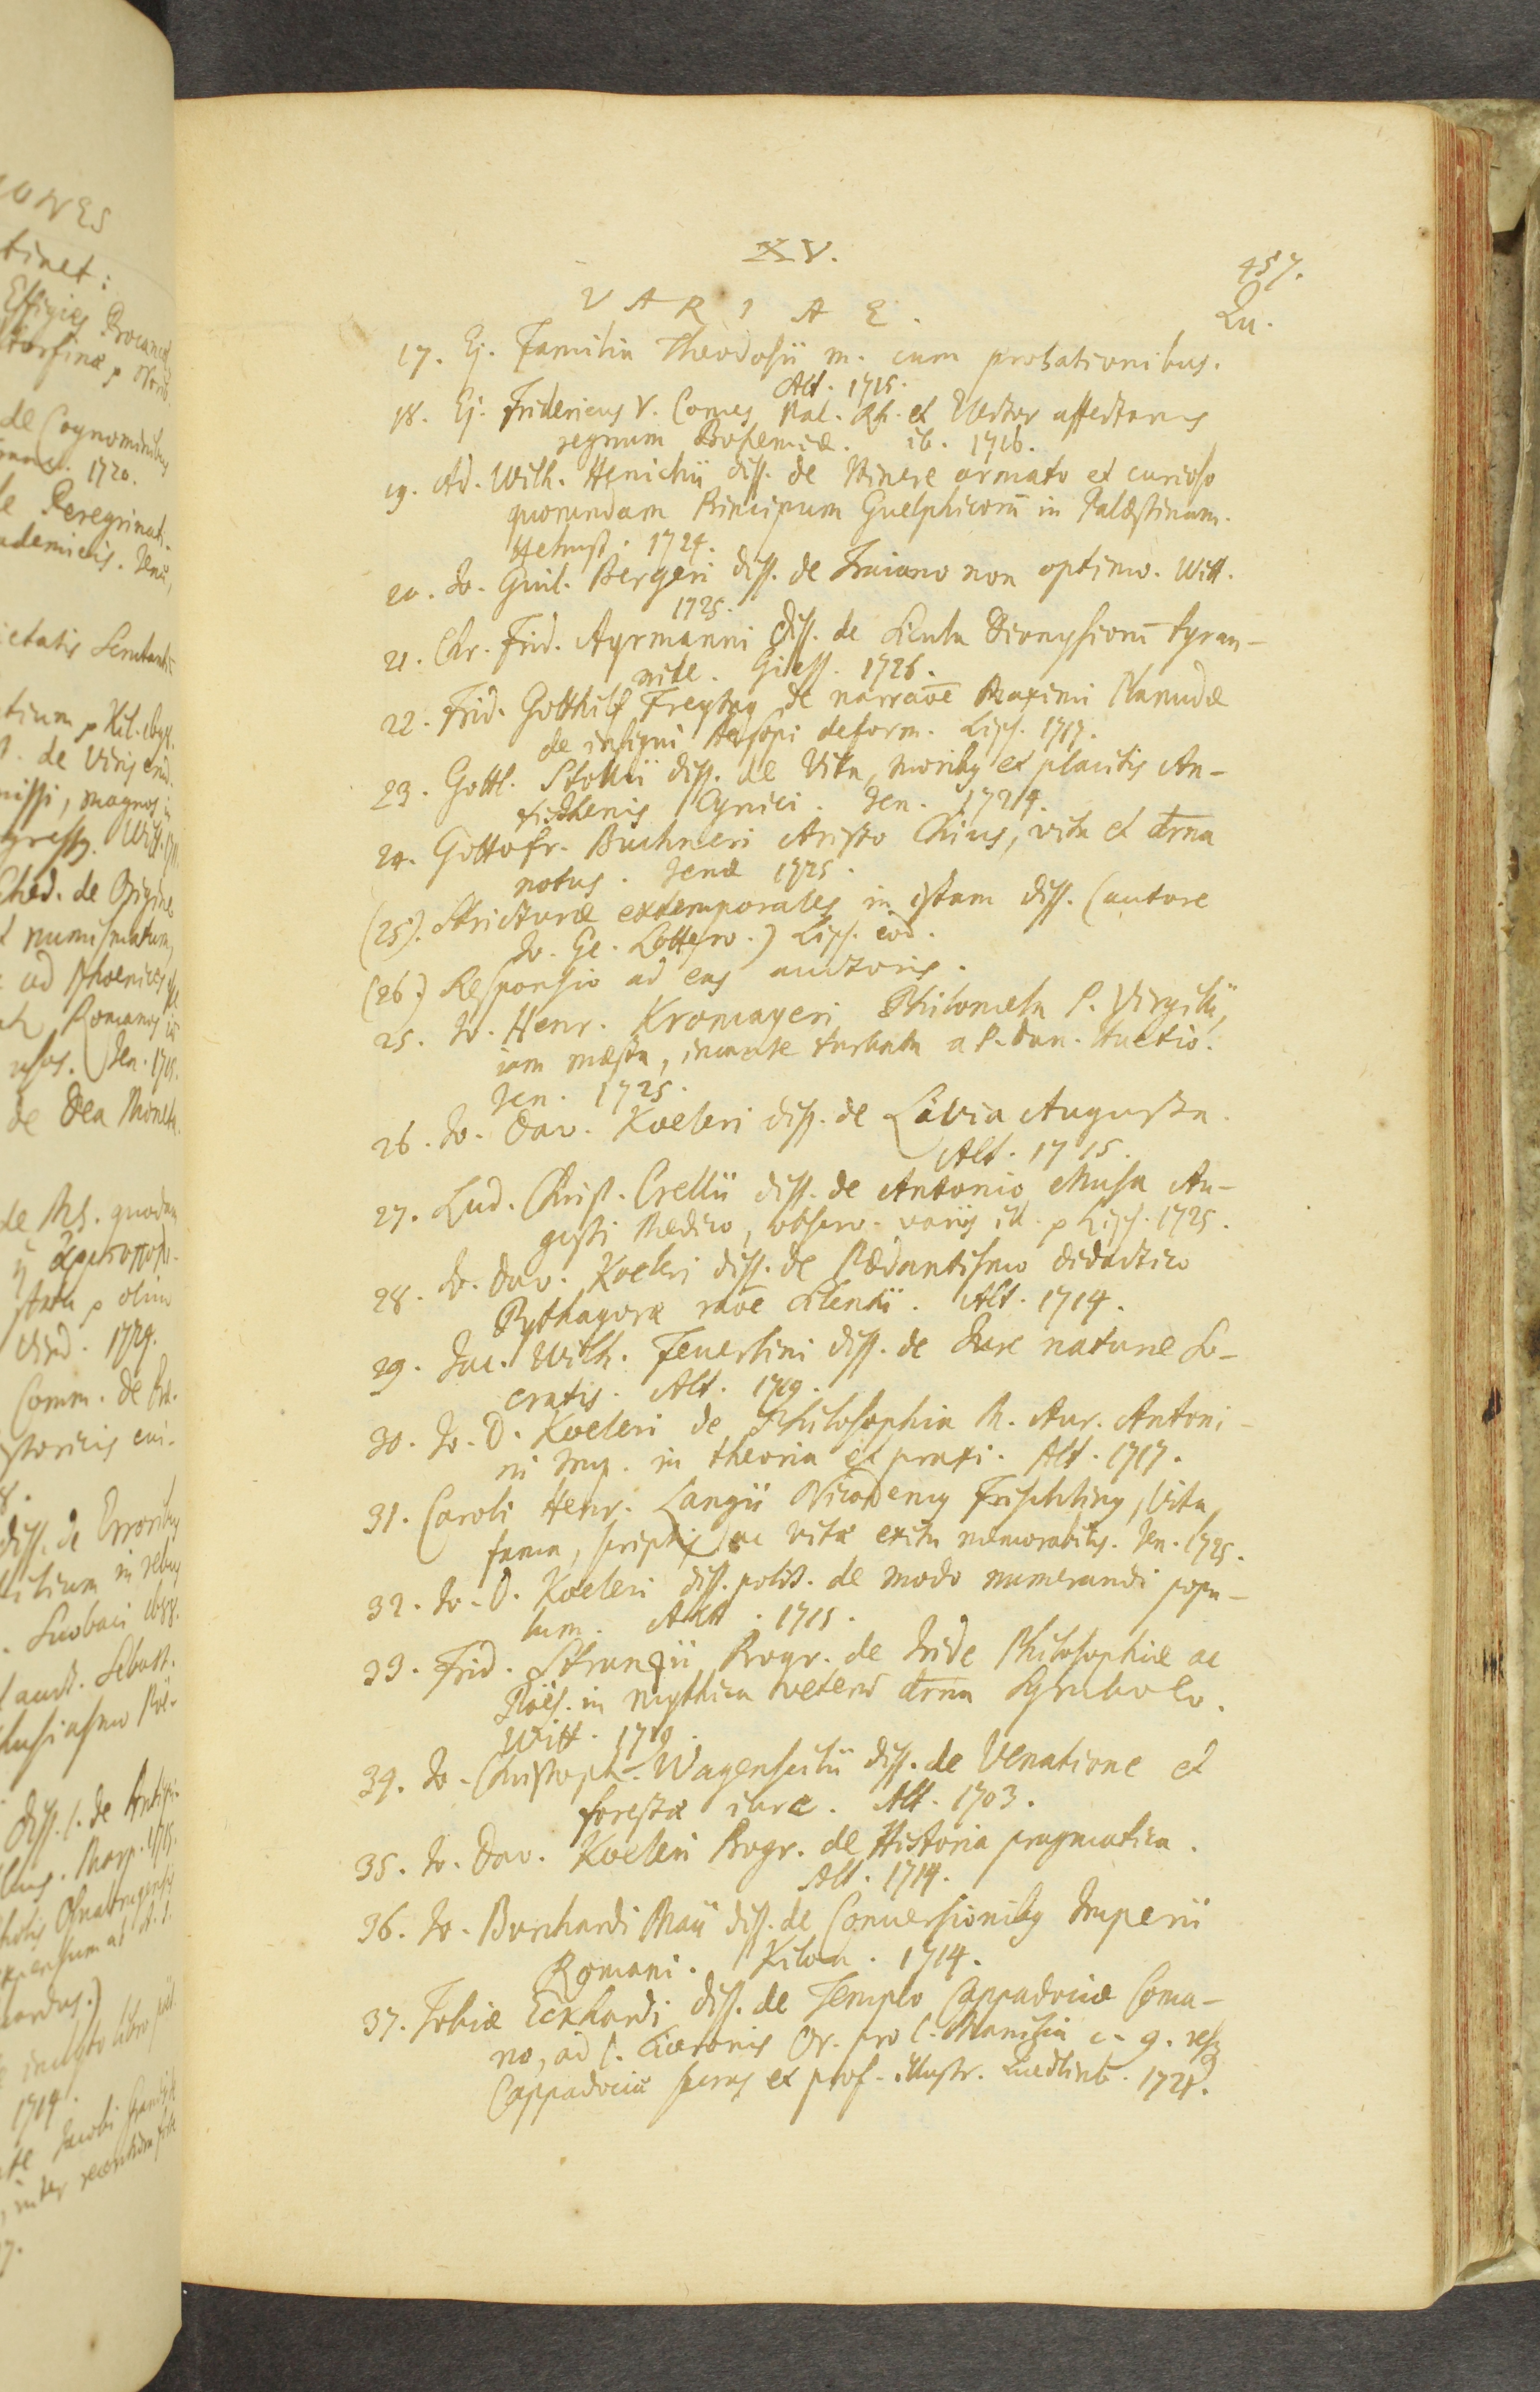 XV.
457.
VARIAE.
Qu.
17. Ej. Familia Theodosii m. cum probationibus.
Alt. 1715.
18. Ej. Fridericus V. Comes Pal. Rh. et Elector affectans
regnum Bohemiæ. ib. 1716.
19. Ad. Wilh. Henichii diss. de Itinere armato et curioso
quorundam Principum Guelphicorū in Palæstinam.
Helmst. 1724.
20. Jo. Guil. Bergeri diss. de Traiano non optimo. Witt.
1725.
21. Chr. Frid. Ayrmanni diss. de Sicula Dionysiorū tyran-
nide. Giess. 1726.
22. Frid. Gotthilf Freytag de narraōe Maximi Planudæ
de insigni Aesopi deform. Lips. 1717.
23. Gottl. Stollii diss. de Vita, moribus et placitis An-
tisthenis Cynici. Jen. 1724.
24. Gottofr. Buchneri Aristo Chius, vita et dr̄na
notus. Jenæ 1725.
(25). Stricturæ extemporales in istam diss. (autore
Jo. Ge. Lottero.) Lips. eod.
(26.) Responsio ad eas auctoris.
25. Jo. Henr. Kromayeri Philomela P. Virgilii,
iam mæsta, incaute turbata a P. Dan. Huetio.
Jen. 1725.
26. Jo. Dav. Koeleri diss. de Livia Augusta.
Alt. 1715.
27. Lud. Christ. Crellii diss. de Antonio Musa Au-
gusti Medico, observ. variis ill. p Lips. 1725.
28. Jo. Dav. Koeleri diss. de Pædantismo didactico
Pythagoræ raōe silentii. Alt. 1714.
29. Jac. Wilh. Feuerlini diss. de Jure naturæ So-
cratis. Alt. 1719.
30. Jo. D. Koeleri de Philosophia M. Aur. Antoni-
ni Imp. in theoria et praxi. Alt. 1717.
31. Caroli Henr. Langii Nicodemus Frischlinus, vita,
fama, scriptis ac vitæ exitu memorabilis. Jen. 1725.
32. Jo. D. Koeleri diss. polit. de modo numerandi popu-
lum. Alt. 1715.
33. Frid. Strunzii Progr. de Iride Philosophiæ ac
Poës. in mythica veterū dr̄na Symbolo.
Witt. 1719.
34. Jo. Christoph. Wagenseilii diss. de Venatione et
forestæ iure. Alt. 1703.
35. Jo. Dav. Koeleri Progr. de Historia pragmatica.
Alt. 1714.
36. Jo. Burchardi Maii diss. de Conversionibus Imperii
Romani. Kilon. 1714.
37. Tobiæ Eckhardi diss. de Templo Cappadociæ Coma-
no, ad l. Ciceronis Or. pro l. Manilia c. 9. resq
Cappadociæ sacras et prof. illustr. Quedlinb. 1721.